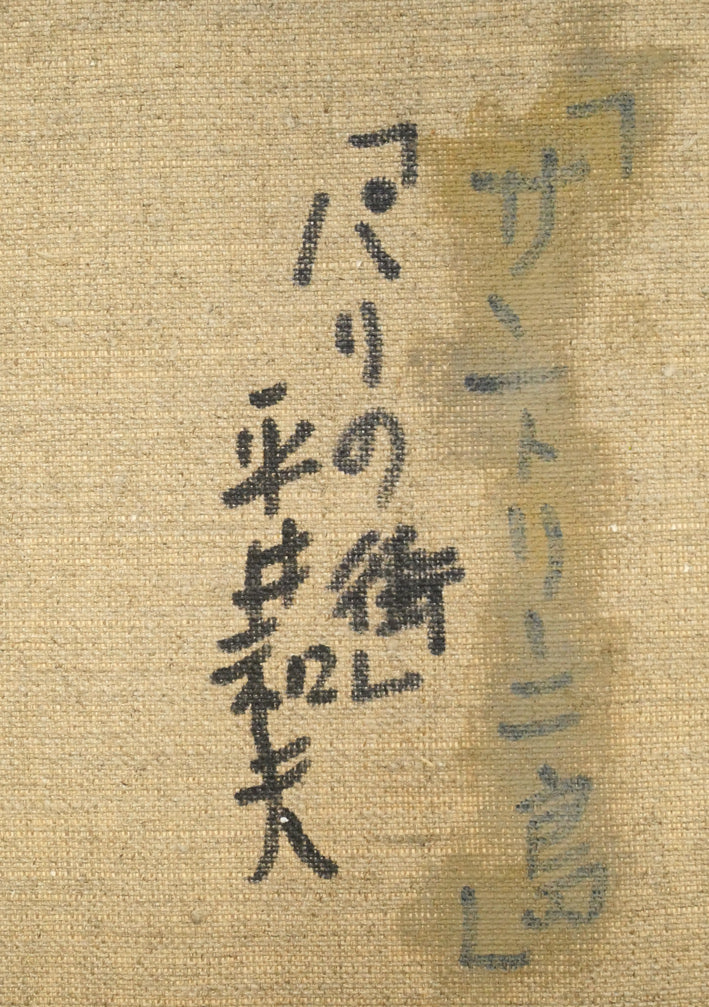 「サントリーニ島」
「パリの街」
平井和夫